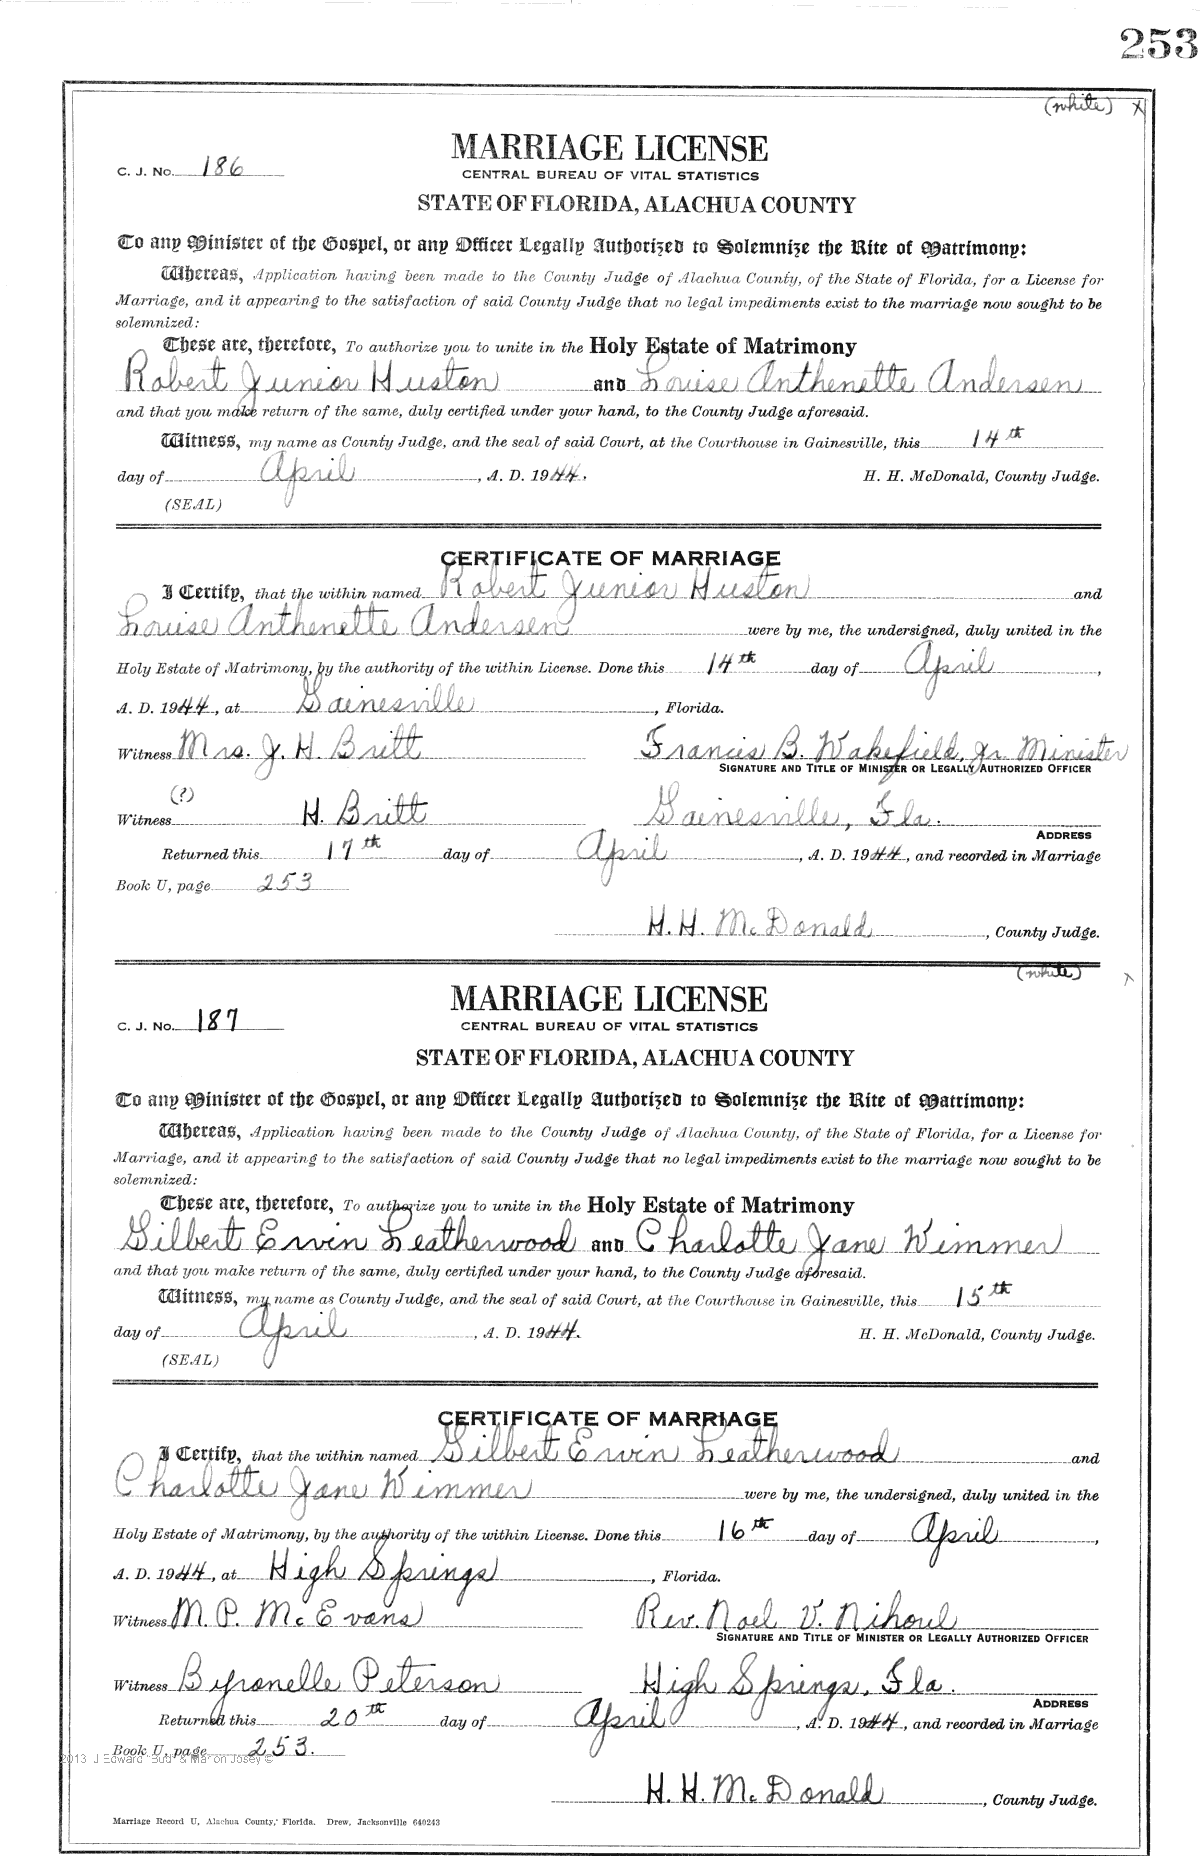 253
(white) X
MARRIAGE LICENSE
C. J. No. 186
CENTRAL BUREAU OF VITAL STATISTICS
STATE OF FLORIDA, ALACHUA COUNTY
To any Minister of the Gospel, or any Officer Legally Authorized to Solemnize the Rite of Matrimony:
Whereas, Application having been made to the County Judge of Alachua County, of the State of Florida, for a License for
Marriage, and it appearing to the satisfaction of said County Judge that no legal impediments exist to the marriage now sought to be
solemnized:
These are, therefore, To authorize you to unite in the Holy Estate of Matrimony
Robert Junior Huston and Louise Anthenette Andersen
and that you make return of the same, duly certified under your hand, to the County Judge aforesaid.
Witness, my name as County Judge, and the seal of said Court, at the Courthouse in Gainesville, this 14th
day of April, A. D. 1944. H. H. McDonald, County Judge.
(SEAL)
CERTIFICATE OF MARRIAGE
I Certify, that the within named Robert Junior Huston and
Louise Anthenette Andersen were by me, the undersigned, duly united in the
Holy Estate of Matrimony, by the authority of the within License. Done this 14th day of April,
A. D. 1944, at Gainesville, Florida.
Witness Mrs. J. H. Britt Francis B. Wakefield, Jr. Minister
SIGNATURE AND TITLE OF MINISTER OR LEGALLY AUTHORIZED OFFICER
(?)
Witness H. Britt Gainesville, Fla.
ADDRESS
Returned this 17th day of April, A. D. 1944, and recorded in Marriage
Book U, page 253
H. H. McDonald, County Judge.
(white) X
MARRIAGE LICENSE
C. J. No. 187
CENTRAL BUREAU OF VITAL STATISTICS
STATE OF FLORIDA, ALACHUA COUNTY
To any Minister of the Gospel, or any Officer Legally Authorized to Solemnize the Rite of Matrimony:
Whereas, Application having been made to the County Judge of Alachua County, of the State of Florida, for a License for
Marriage, and it appearing to the satisfaction of said County Judge that no legal impediments exist to the marriage now sought to be
solemnized:
These are, therefore, To authorize you to unite in the Holy Estate of Matrimony
Gilbert Ervin Leatherwood and Charlotte Jane Wimmer
and that you make return of the same, duly certified under your hand, to the County Judge aforesaid.
Witness, my name as County Judge, and the seal of said Court, at the Courthouse in Gainesville, this 15th
day of April, A. D. 1944. H. H. McDonald, County Judge.
(SEAL)
CERTIFICATE OF MARRIAGE
I Certify, that the within named Gilbert Ervin Leatherwood and
Charlotte Jane Wimmer were by me, the undersigned, duly united in the
Holy Estate of Matrimony, by the authority of the within License. Done this 16th day of April,
A. D. 1944, at High Springs, Florida.
Witness M. P. McEvans Rev. Noel V. Nihoul
SIGNATURE AND TITLE OF MINISTER OR LEGALLY AUTHORIZED OFFICER
Witness Byronelle Peterson High Springs, Fla.
ADDRESS
Returned this 20th day of April, A. D. 1944, and recorded in Marriage
Book U, page 253.
2013 J Edward "Bud" & Marion Josey ©
H. H. McDonald, County Judge.
Marriage Record U, Alachua County, Florida. Drew, Jacksonville 640243